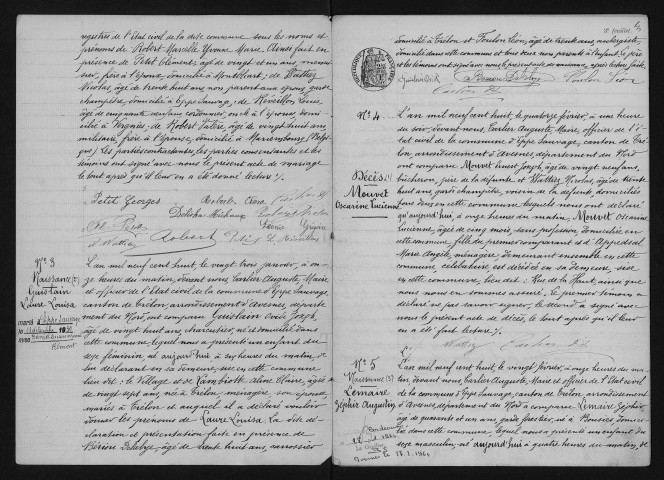 registre de l'état civil de la dite commune sous les noms et
prénoms de Robert Marcelle Yvonne Marie. Ainsi fait en
présence de Petit Clément, âgé de vingt et un ans, menui-
sier, frère à l'époux, domicilié à Montbliart; de Wattiez
Nicolas, âgé de trente huit ans non parent aux époux, garde
champêtre, domicilié à Eppe-Sauvage; de Réveillon Louis,
âgé de cinquante neuf ans, cordonnier, oncle à l'époux, domi-
cilié à Vergnies; de Robert Valère âgé de vingt huit ans
militaire, frère à l'épouse, domicilié à Mariembourg (Belgi-
que). Les parties contractantes, les parties consentantes et les
témoins ont signé avec nous le présent acte de mariage
le tout après qu'il leur en a été donné lecture.
Petit Georges Robert Clara Carlier
Robert
N. Wattiez Robert
N° 3
Naissance
Guislain
Laure Louisa
L'an mil neuf cent huit, le vingt janvier, à on-
ze heures du matin, devant nous, Carlier Auguste, Maire
et officier de l'état civil de la commune d'Eppe Sauvage
canton de Trélon, arrondissement d'Avesnes, départe-
ment du Nord, ont comparu Guislain Cuir Joseph,
âgé de vingt huit ans, charcutier, né et domicilié dans
cette commune, lequel nous a présenté un enfant du
sexe féminin né aujourd'hui à six heures du matin, de
lui déclarant en sa demeure, sise en cette commune
lieu dit: le Village et de Lambiotte Aline Claire, âgée
de vingt sept ans, née à Trélon, ménagère, son épouse,
mariés à Trélon et auquel il a déclaré vouloir
donner les prénoms de Laure Louisa. La dite dé-
claration et présentation faite en présence de
âgé de trente huit ans, carrossier
domicilié à Trélon et Poulon Léon, âgé de trente ans, aubergiste,
domicilié dans cette commune et tous deux non parents à l'enfant. Le père
et les témoins ont signé avec nous le présent acte de naissance après lecture faite.
Guislain Poulon Léon
Carlier
N° 4
Décès
Mouvet
Oscarine Lucienne
L'an mil neuf cent huit, le quatorze février, à une heure
du soir, devant nous, Carlier Auguste Maire, officier de l'état
civil de la commune d'Eppe Sauvage, canton de Tré-
lon, arrondissement d'Avesnes, département du Nord
ont comparu Mouvet Ernest Joseph, âgé de vingt neuf ans,
bûcheron, père de la défunte et Wattiez Nicolas, âgé de trente
huit ans, garde champêtre, voisin de la défunte, domiciliés
tous deux en cette commune lesquels nous ont déclaré
qu'aujourd'hui à onze heures du matin, Mouvet Oscarine
Lucienne, âgée de cinq mois, sans profession domiciliée en
cette commune, fille du premier comparant et d'Appedeal
Marie Angèle, ménagère, demeurant ensemble en cette
commune, célibataire est décédée en sa demeure, sise
en cette commune, lieu dit: Rue de la Haut, ainsi que
nous nous en sommes assuré. Le premier témoin a
déclaré ne pas savoir signer, le second a signé avec
nous le présent acte de décès, le tout après qu'il leur
en a été fait lecture.
Wattiez Carlier
N° 5
Naissance
Lemaire
Zéphir Augustin
L'an mil neuf cent huit, le vingt février, à onze heures du ma-
tin, devant nous, Carlier Auguste, Maire et officier de l'état civil
de la commune d'Eppe Sauvage, canton de Trélon, arrondissement
d'Avesnes, département du Nord a comparu Lemaire Zéphir,
âgé de quarante et un ans, garde forestier, né à Bousies, domici-
lié dans cette commune, lequel nous a présenté un enfant du
sexe masculin, né aujourd'hui à quatre heures du matin, de